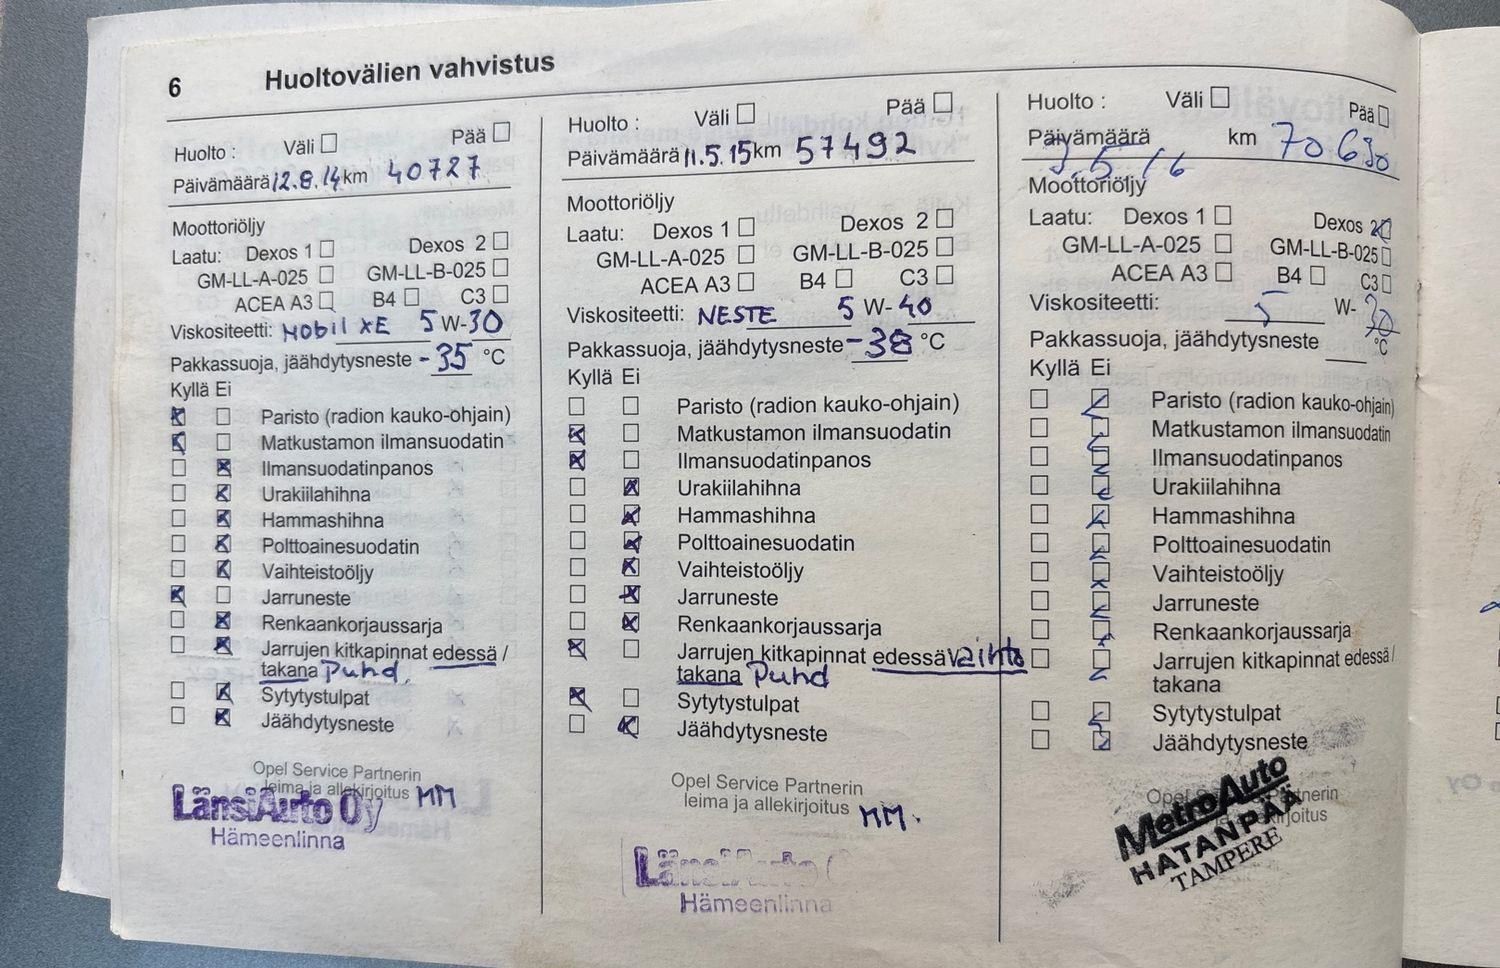 6 Huoltovälien vahvistus
Huolto : Väli Pää
Päivämäärä 12.8.14 km 40727
Moottoriöljy
Laatu: Dexos 1 Dexos 2
GM-LL-A-025 GM-LL-B-025
ACEA A3 B4 C3
Viskositeetti: MObil XE 5 W-30
Pakkassuoja, jäähdytysneste -35 °C
Kyllä Ei
Paristo (radion kauko-ohjain)
Matkustamon ilmansuodatin
Ilmansuodatinpanos
Urakiilahihna
Hammashihna
Polttoainesuodatin
Vaihteistoöljy
Jarruneste
Renkaankorjaussarja
Jarrujen kitkapinnat edessä /
takana Puhd.
Sytytystulpat
Jäähdytysneste
Opel Service Partnerin
leima ja allekirjoitus MM
LänsiAuto Oy
Hämeenlinna
Huolto : Väli Pää
Päivämäärä 11.5.15 km 57492
Moottoriöljy
Laatu: Dexos 1 Dexos 2
GM-LL-A-025 GM-LL-B-025
ACEA A3 B4 C3
Viskositeetti: NESTE 5 W-40
Pakkassuoja, jäähdytysneste -38 °C
Kyllä Ei
Paristo (radion kauko-ohjain)
Matkustamon ilmansuodatin
Ilmansuodatinpanos
Urakiilahihna
Hammashihna
Polttoainesuodatin
Vaihteistoöljy
Jarruneste
Renkaankorjaussarja
Jarrujen kitkapinnat edessä vaihto
takana Puhd
Sytytystulpat
Jäähdytysneste
Opel Service Partnerin
leima ja allekirjoitus MM.
LänsiAuto
Hämeenlinna
Huolto : Väli Pää
Päivämäärä km
Moottoriöljy
Laatu: Dexos 1 Dexos 2
GM-LL-A-025 GM-LL-B-025
ACEA A3 B4 C3
Viskositeetti: 5 W-30
Pakkassuoja, jäähdytysneste °C
Kyllä Ei
Paristo (radion kauko-ohjain)
Matkustamon ilmansuodatin
Ilmansuodatinpanos
Urakiilahihna
Hammashihna
Polttoainesuodatin
Vaihteistoöljy
Jarruneste
Renkaankorjaussarja
Jarrujen kitkapinnat edessä /
takana
Sytytystulpat
Jäähdytysneste
MetroAuto
HATANPÄÄ
TAMPERE